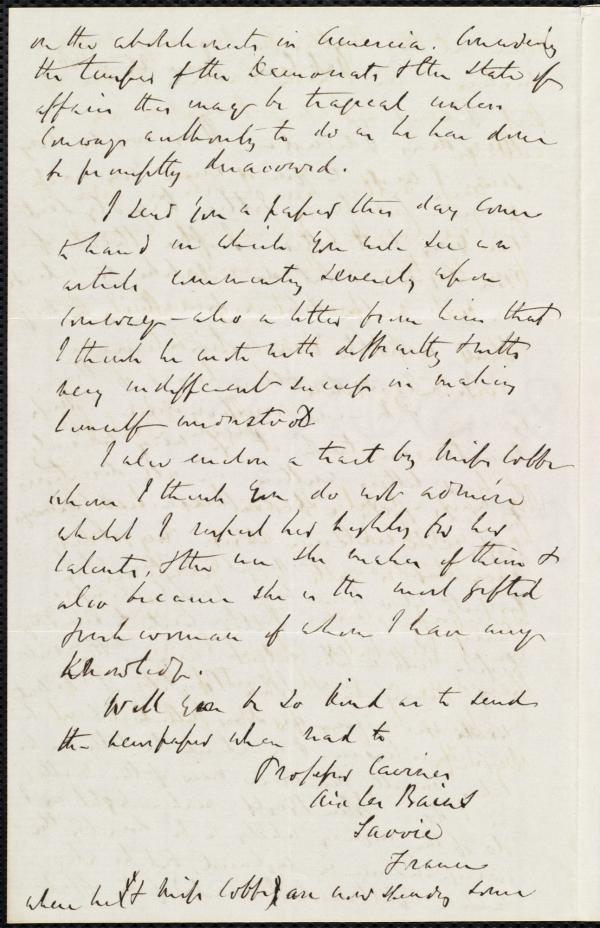 on the abolitionists in America. Considering
the temper of the Democrats & the state of
affairs this may be tragical unless
Conways authority to do as he has done
be promptly disavowed.
I send you a paper this day come
to hand in which you will see an
article commenting severely upon
Conway - also a letter from him that
I think he wrote with difficulty & with
very indifferent success in making
himself understood
I also enclose a tract by Miss Cobbe
whom I think you do not admire
whilst I respect her highly for her
talents, & the use she makes of them &
also because she is the most gifted
Irish woman of whom I have any
knowledge.
Will you be so kind as to send
the newspaper when read to
Professor Cairnes
Aix les Bains
Savoie
France
where he (& Miss Cobbe) are now spending some